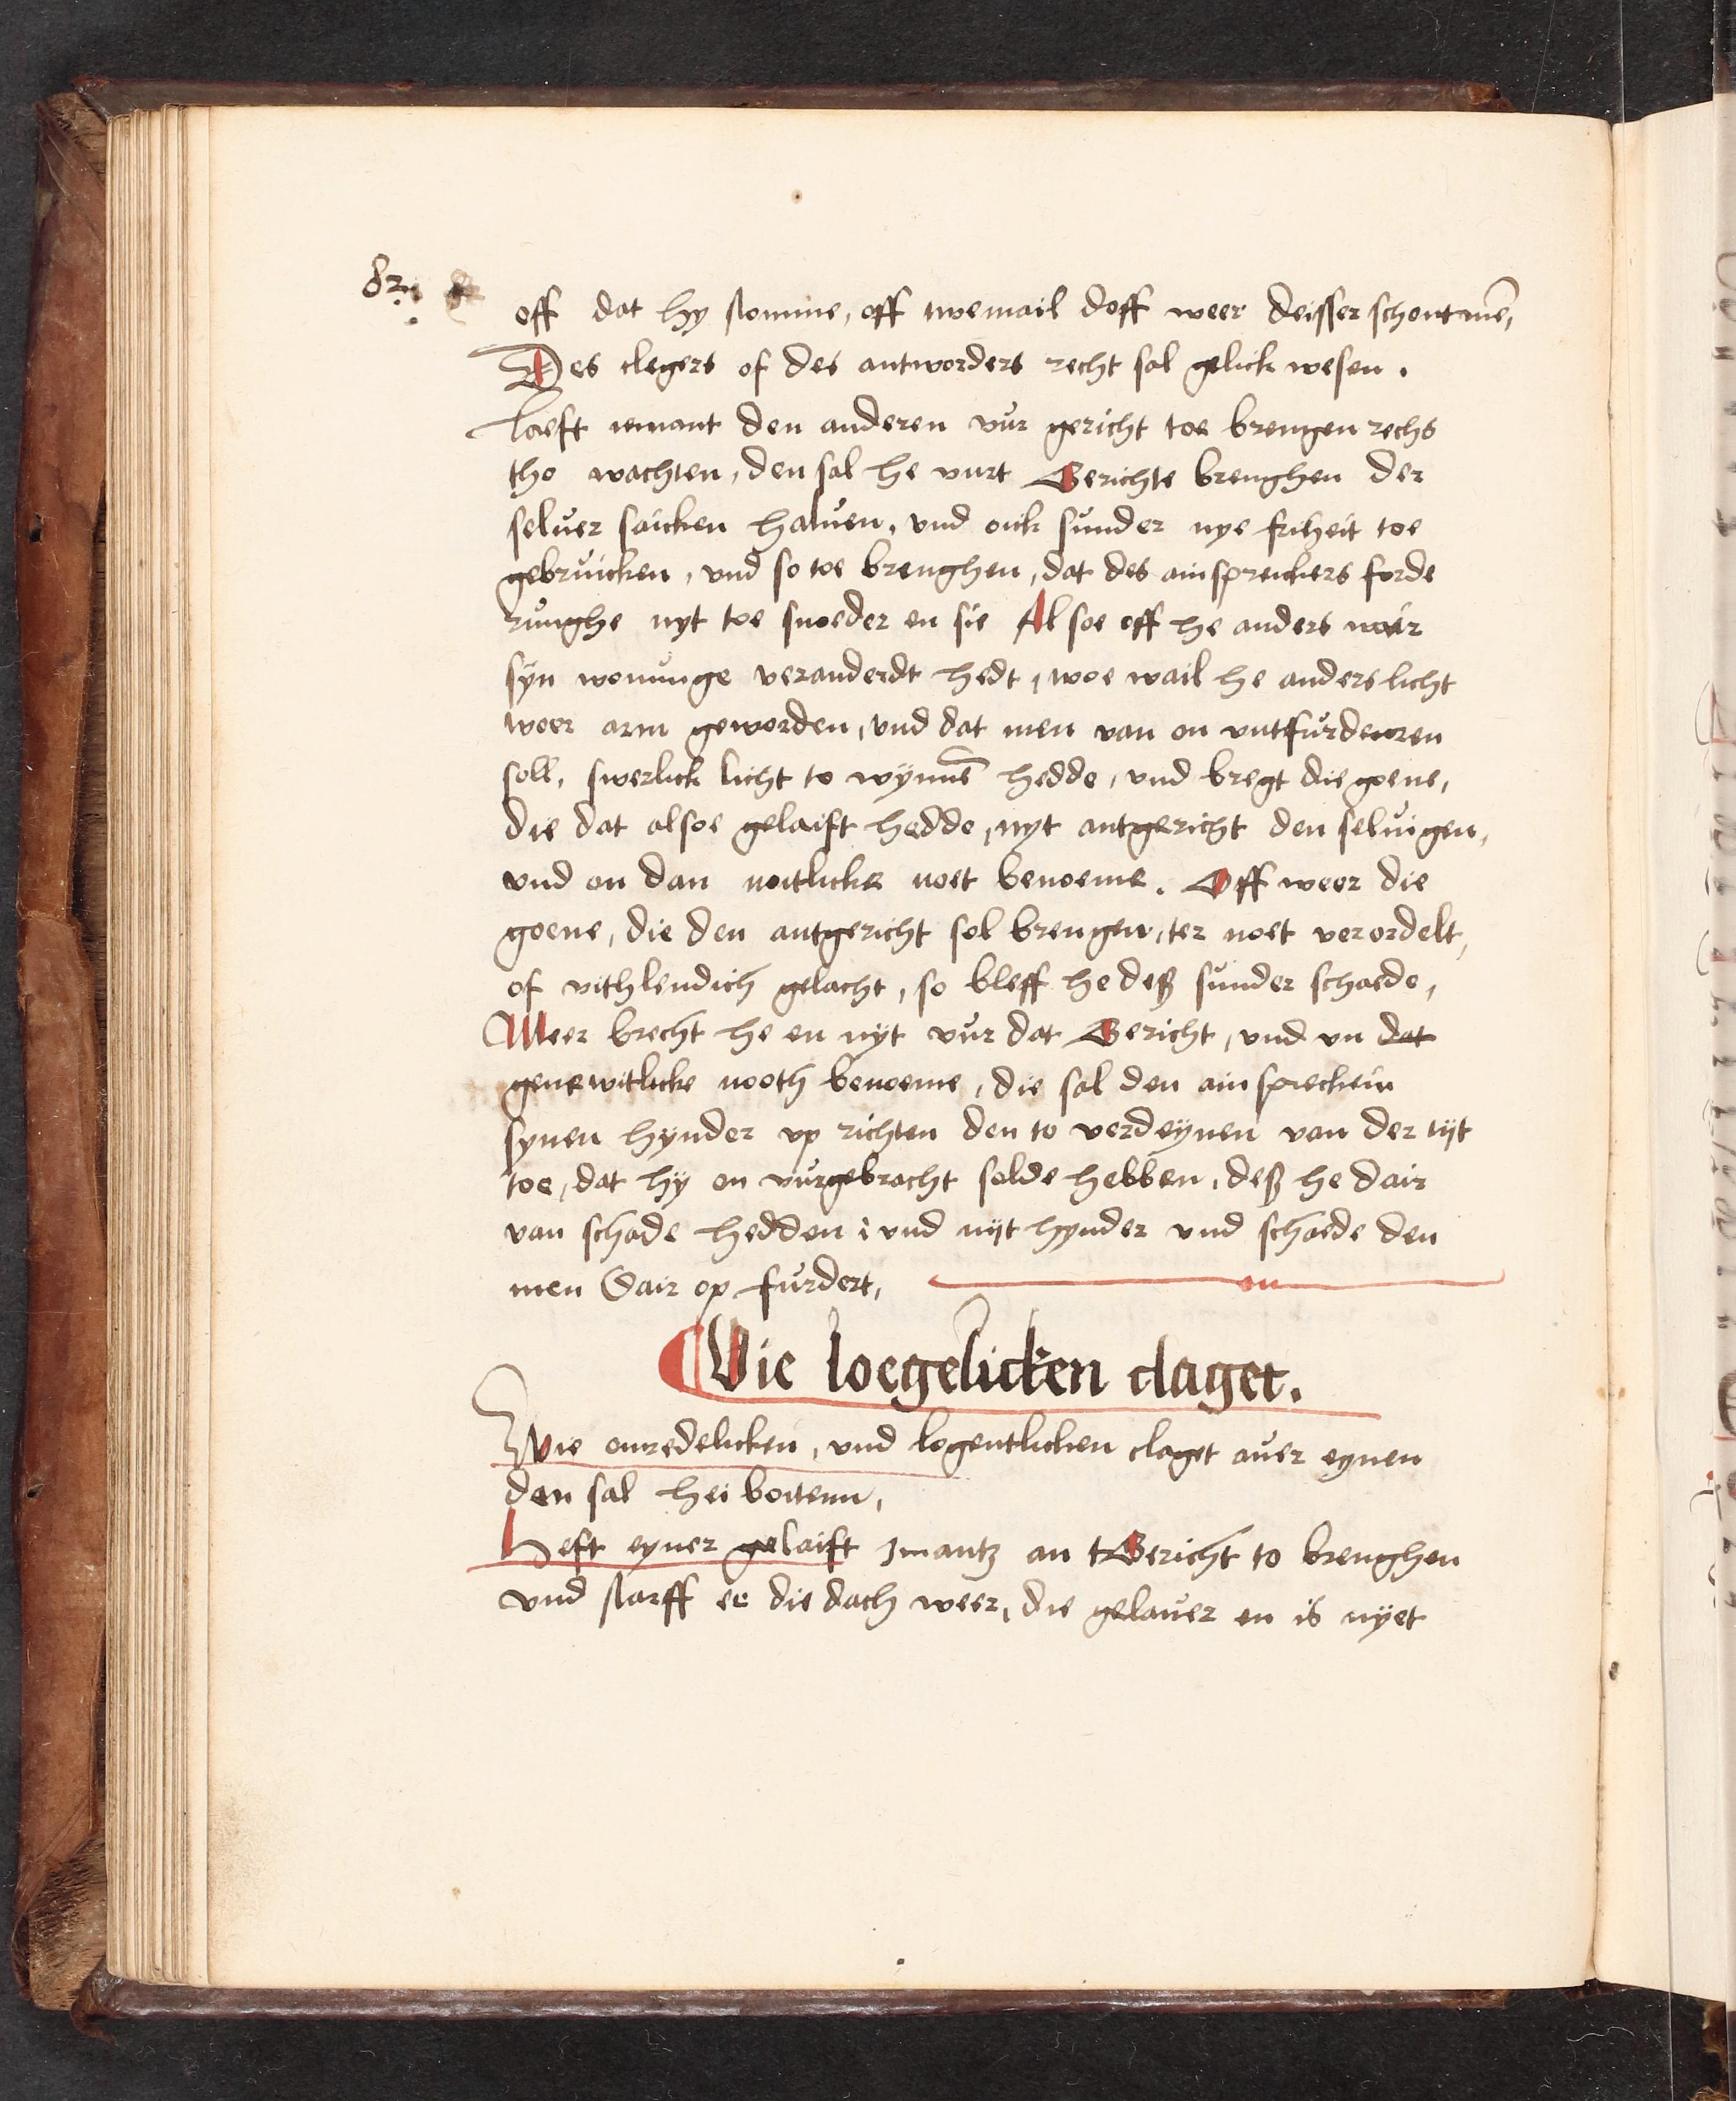 82
off dat hy stomme, off twemail doff weer deisser schontauẽ,
Des clegers of des antworders recht sal gelick wesen.
Laeft iemant den anderen vur gericht toe brengen rechs
tho wachten, den sal he vurt Gerichte brenghen der
seluer saicken haluen, vnd oick sunder nye friheit toe
gebruicken, vnd so toe brenghen, dat des ainspreickers forde
runghe nyt toe snoeder en sie Al soe off he anders waer
syn wonunge veranderdt hedt, woe wail he anders licht
weer arm geworden, vnd dat men van on vntfurdenren
soll, swerlick licht to wynnẽ hedde, vnd bregt die goene,
die dat alsoe gelaift hedde, nyt antgericht den seluigen,
vnd on dan noitlicke noet benoeme. Off weer die
goene, die den antgericht sol brengen, ter noet verordelt,
of vithlendich gelacht, so bleff he deß sunder schaede,
Meer brecht he en nyt vur dat Gericht, vnd vn dat
gene witlicke nooth benoeme, die sal den ainspreckein
synen hynder vp richten den to verdeynen van der tijt
toe, dat hy on vurgebracht solde hebben, deß he dair
van schade hedden, vnd nijt hynder vnd schaede den
men dair op furdert,
on
Wie loegelicken claget.
Wie onredelicken, vnd logentlicken claget auer eynen
den sal hei boitenn,
Heft eyner gelaift Jmantz an t Gericht to brenghen
vnd starff ee die dach weer, die gelauer en is nyet